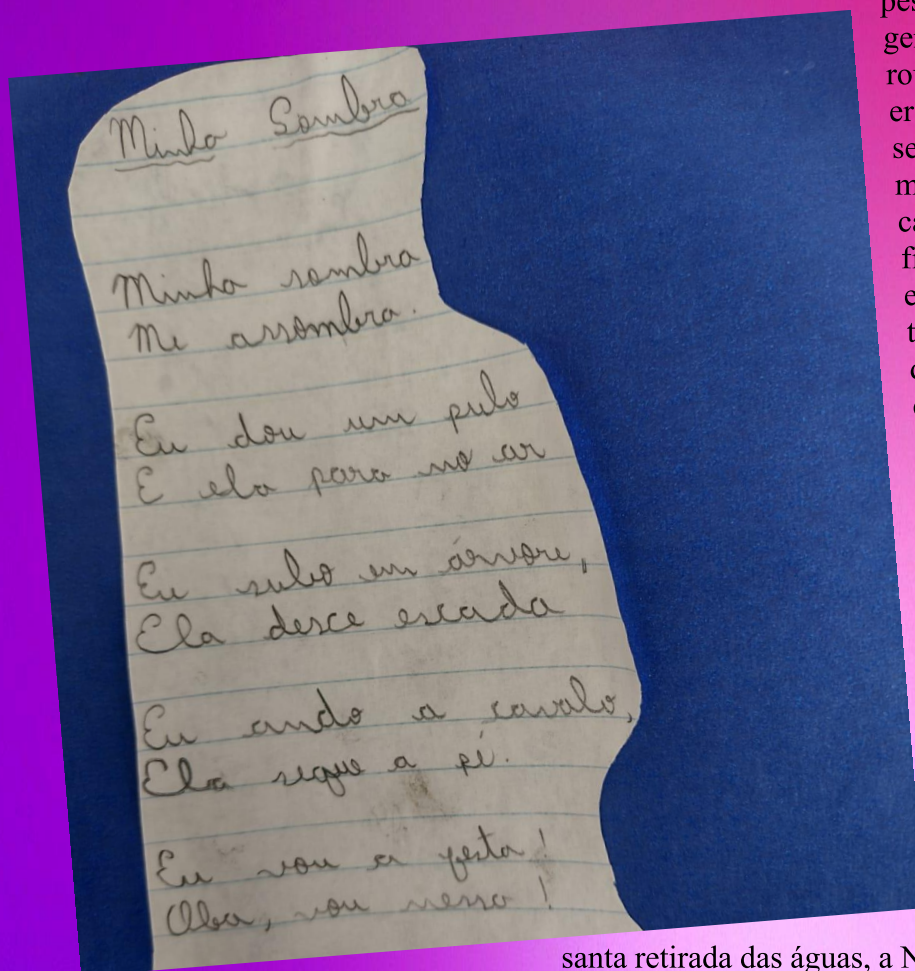 Minha Sombra
Minha sombra
Me assombra.
Eu dou um pulo
E ela para no ar
Eu subo em árvore,
Ela desce escada
Eu ando a cavalo,
Ela segue a pé.
Eu vou a festa!
Oba, vou nessa!
santa retirada das águas, a